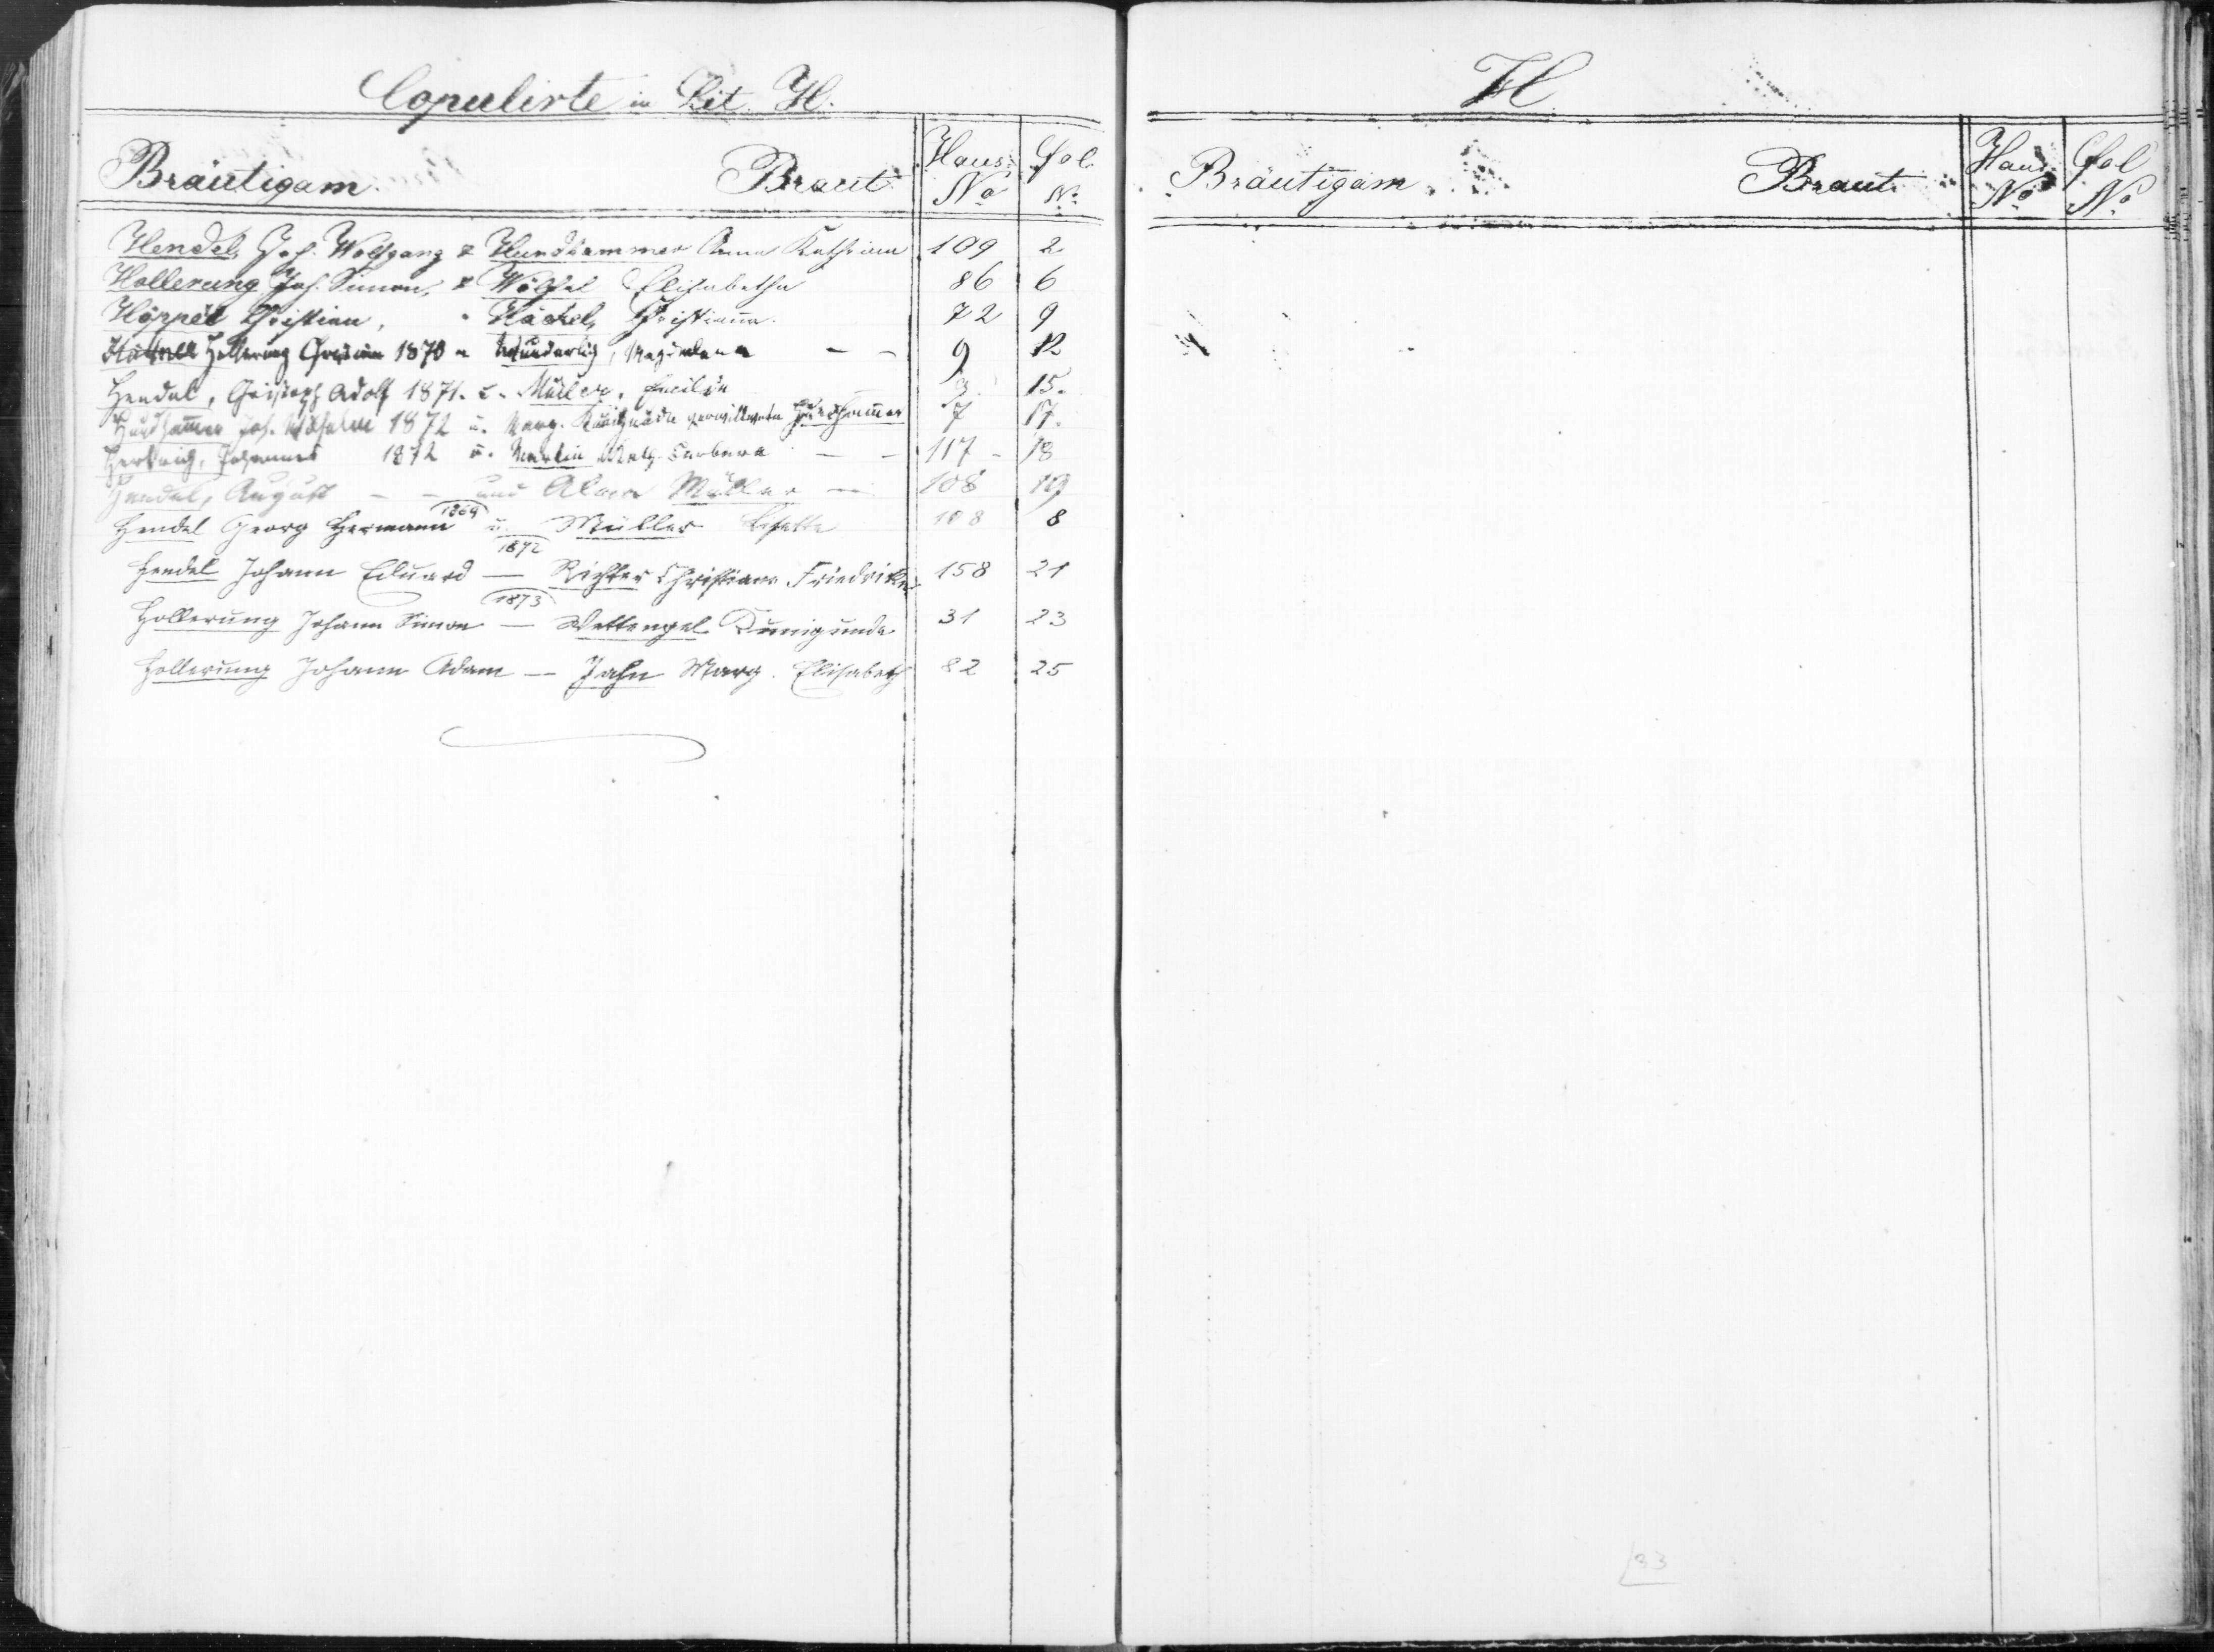 Copulirte in Lit. H.
Bräutigam. Braut Haus No Fol. No.
Hendel, Joh. Wolfgang & Hundhammer Anna Kathrina 109 2
Hollerung Joh. Simon, & Wölfel Elisabetha 86 6
Höppel Christian, " Häckel, Christiana. 72 9
Hollerung Christian 1870 u Wunderlich, Magdalena — — 9 12
Hendel, Christoph Adolf 1871. u. Müller, Cecilie 3. 15.
Hundhammer Joh. Wilhelm 1872 u. Marg. Kunigunda verwittwete Hundhammer 7 17.
Hertwig, Johannes 1872 u. Martin Barbara — — 117 - 18
Hendel, August — — und Alma Müller — 108 19
Hendel Georg Hermann 1869 u. Müller Lisette 108 8
1872
Hendel Johann Eduard — Richter Christiane Friedrike 158 21
1873
Hollerung Johann Simon — Wettengel Kunigunda 31 23
Hollerung Johann Adam — Jahn Marg. Elisabeth 82 25
H
Bräutigam Braut Haus No Fol No.
33